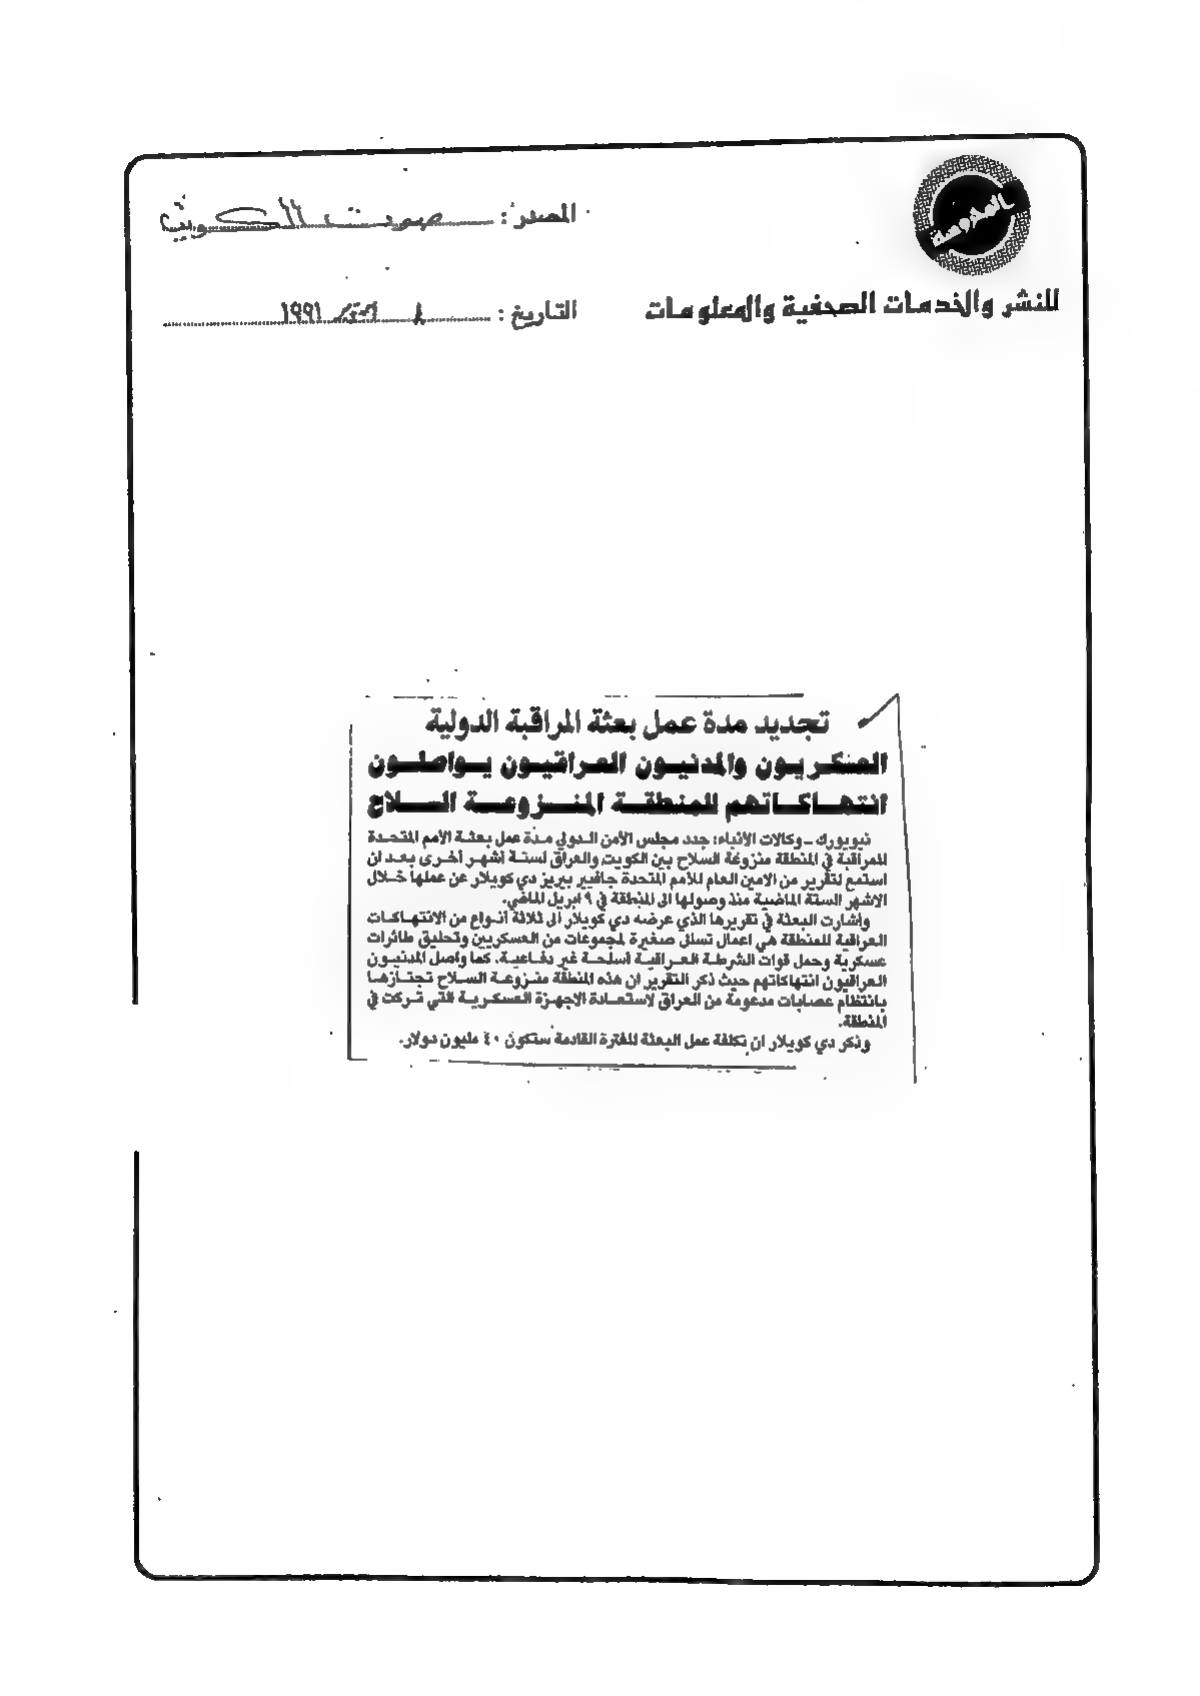 المحروسة
للنشر والخدمات الصحفية والمعلومات
المصدر : صوت الكويت
التاريخ : ٨ أكتوبر ١٩٩١
تجديد مدة عمل بعثة المراقبة الدولية
العسكريون والمدنيون العراقيون يواصلون
انتهاكاتهم للمنطقة المنزوعة السلاح
نيويورك - وكالات الأنباء: جدد مجلس الأمن الدولي مدة عمل بعثة الأمم المتحدة
للمراقبة في المنطقة منزوعة السلاح بين الكويت والعراق لستة أشهر أخرى بعد ان
استمع لتقرير من الامين العام للأمم المتحدة جافيير بيريز دي كويلار عن عملها خلال
الاشهر الستة الماضية منذ وصولها الى المنطقة في ٩ ابريل الماضي.
وأشارت البعثة في تقريرها الذي عرضه دي كويلار الى ثلاثة أنواع من الانتهاكات
العراقية للمنطقة هي اعمال تسلل صغيرة لمجموعات من العسكريين وتحليق طائرات
عسكرية وحمل قوات الشرطة العراقية اسلحة غير دفاعية. كما واصل المدنيون
العراقيون انتهاكاتهم حيث ذكر التقرير ان هذه المنطقة منزوعة السلاح تجتازها
بانتظام عصابات مدعومة من العراق لاستعادة الاجهزة العسكرية التي تركت في
المنطقة.
وذكر دي كويلار ان تكلفة عمل البعثة للفترة القادمة ستكون ٤٠ مليون دولار.